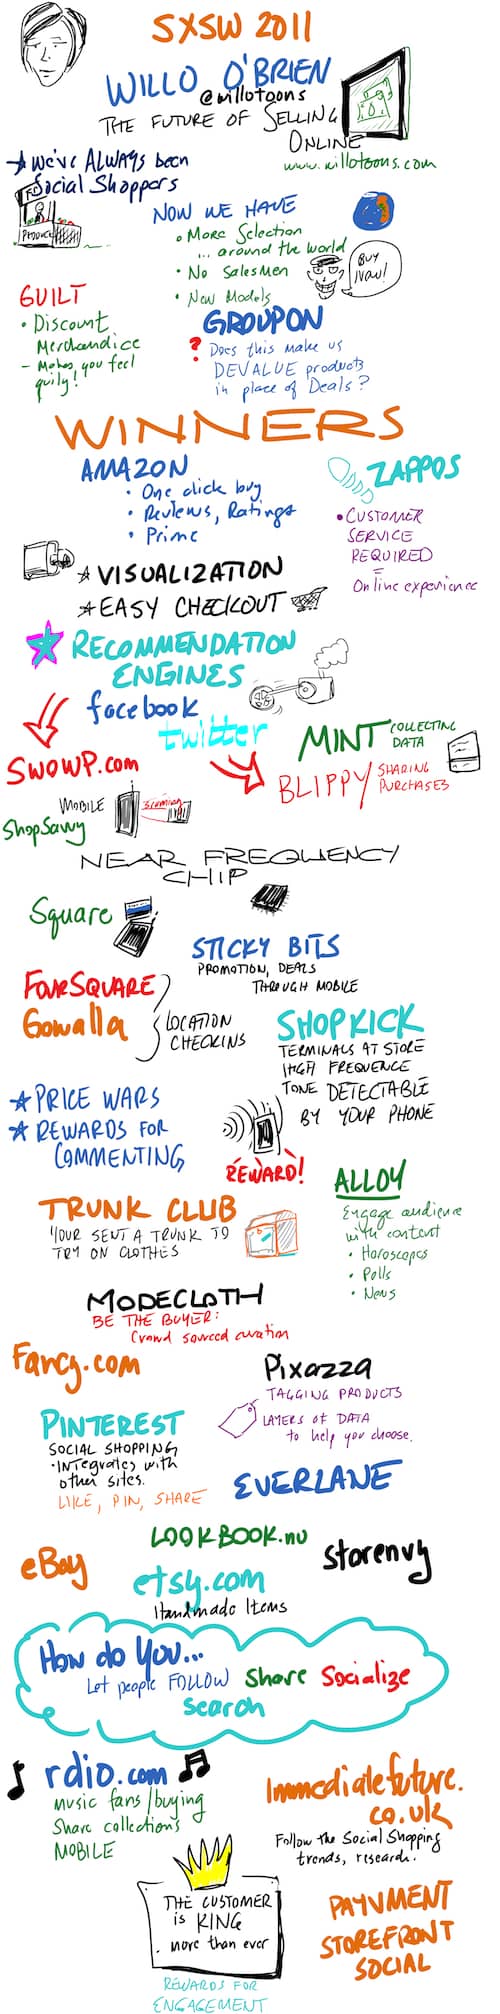 SXSW 2011
WILLO O'BRIEN
@willotoons
THE FUTURE OF SELLING
ONLINE
www.willotoons.com
We've ALWAYS been
Social Shoppers
PRODUCE
NOW WE HAVE
• More Selection
... around the world
• No Salesmen
• New Models
BUY
NOW!
GUILT
• Discount
Merchandice
- Makes you feel
guily!
GROUPON
? Does this make us
DEVALUE products
in place of Deals?
WINNERS
AMAZON
• One click buy
• Reviews, Ratings
• Prime
ZAPPOS
• CUSTOMER
SERVICE
REQUIRED
=
Online experience
VISUALIZATION
EASY CHECKOUT
RECOMMENDATION
ENGINES
facebook
twitter
MINT COLLECTING
DATA
SWOWP.com
BLIPPY SHARING
PURCHASES
MOBILE
Scanning
ShopSavvy
NEAR FREQUENCY
CHIP
Square
STICKY BITS
PROMOTION, DEALS
THROUGH MOBILE
FOURSQUARE
Gowalla
LOCATION
CHECKINS
SHOPKICK
TERMINALS AT STORE
HIGH FREQUENCE
TONE DETECTABLE
BY YOUR PHONE
PRICE WARS
REWARDS FOR
COMMENTING
REWARD!
ALLOY
Engage audience
with content
• Horoscopes
• Polls
• News
TRUNK CLUB
YOUR SENT A TRUNK TO
TRY ON CLOTHES
MODECLOTH
BE THE BUYER:
Crowd sourced curation
Fancy.com
Pixazza
TAGGING PRODUCTS
LAYERS of DATA
to help you choose.
PINTEREST
SOCIAL SHOPPING
• INTEgrates with
other sites.
LIKE, PIN, SHARE
EVERLANE
LOOKBOOK.nu
eBay
storenvy
etsy.com
Handmade Items
How do You...
Let people FOLLOW Share Socialize
Search
rdio.com
music fans/buying
Share collections
MOBILE
Immediatefuture.
co.uk
Follow the Social Shopping
trends, research.
THE CUSTOMER
is KING
more than ever
PAYVMENT
STOREFRONT
SOCIAL
REWARDS FOR
ENGAGEMENT